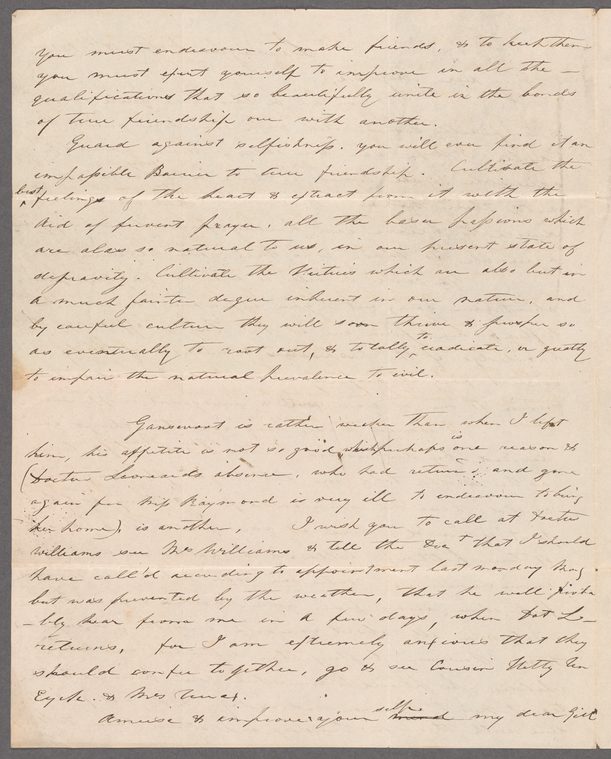 you must endeavour to make friends, & to keep them
you must exert yourself to improve in all the —
qualifications that so beautifully unite in the bonds
of true friendship one with another.
Guard against selfishness. you will ever find it an
impassible Barrier to true friendship. Cultivate the
best
feelings of the heart & extract from it with the
Aid of fervent prayer, all the baser passions which
are alas so natural to us, in our present state of
depravity. Cultivate the Virtues which are also but in
a much fainter degree inherent in our nature, and
by careful culture they will soon thrive & prosper so
as eventually to root out, & totally to eradicate, or greatly
to impair the natural prevalence to evil.
Gansevoort is rather weaker than when I left
him, his appetite is not so good, perhaps is one reason &
(Doctor Leonards absence, who had return'd, and gone
again for Miss Raymond is very ill to endeavour to bring
her home), is another. I wish you to call at Doctor
Williams see Mrs Williams & tell the Doct that I should
have call'd according to appointment last monday
but was prevented by the weather, that he will proba
-bly hear from me in a few days, when Dct L—
returns, for I am extremely anxious that they
should confer together, go & see Cousin Hetty Ten
Eyck. & Mrs
Amuse & improve your self mind my dear